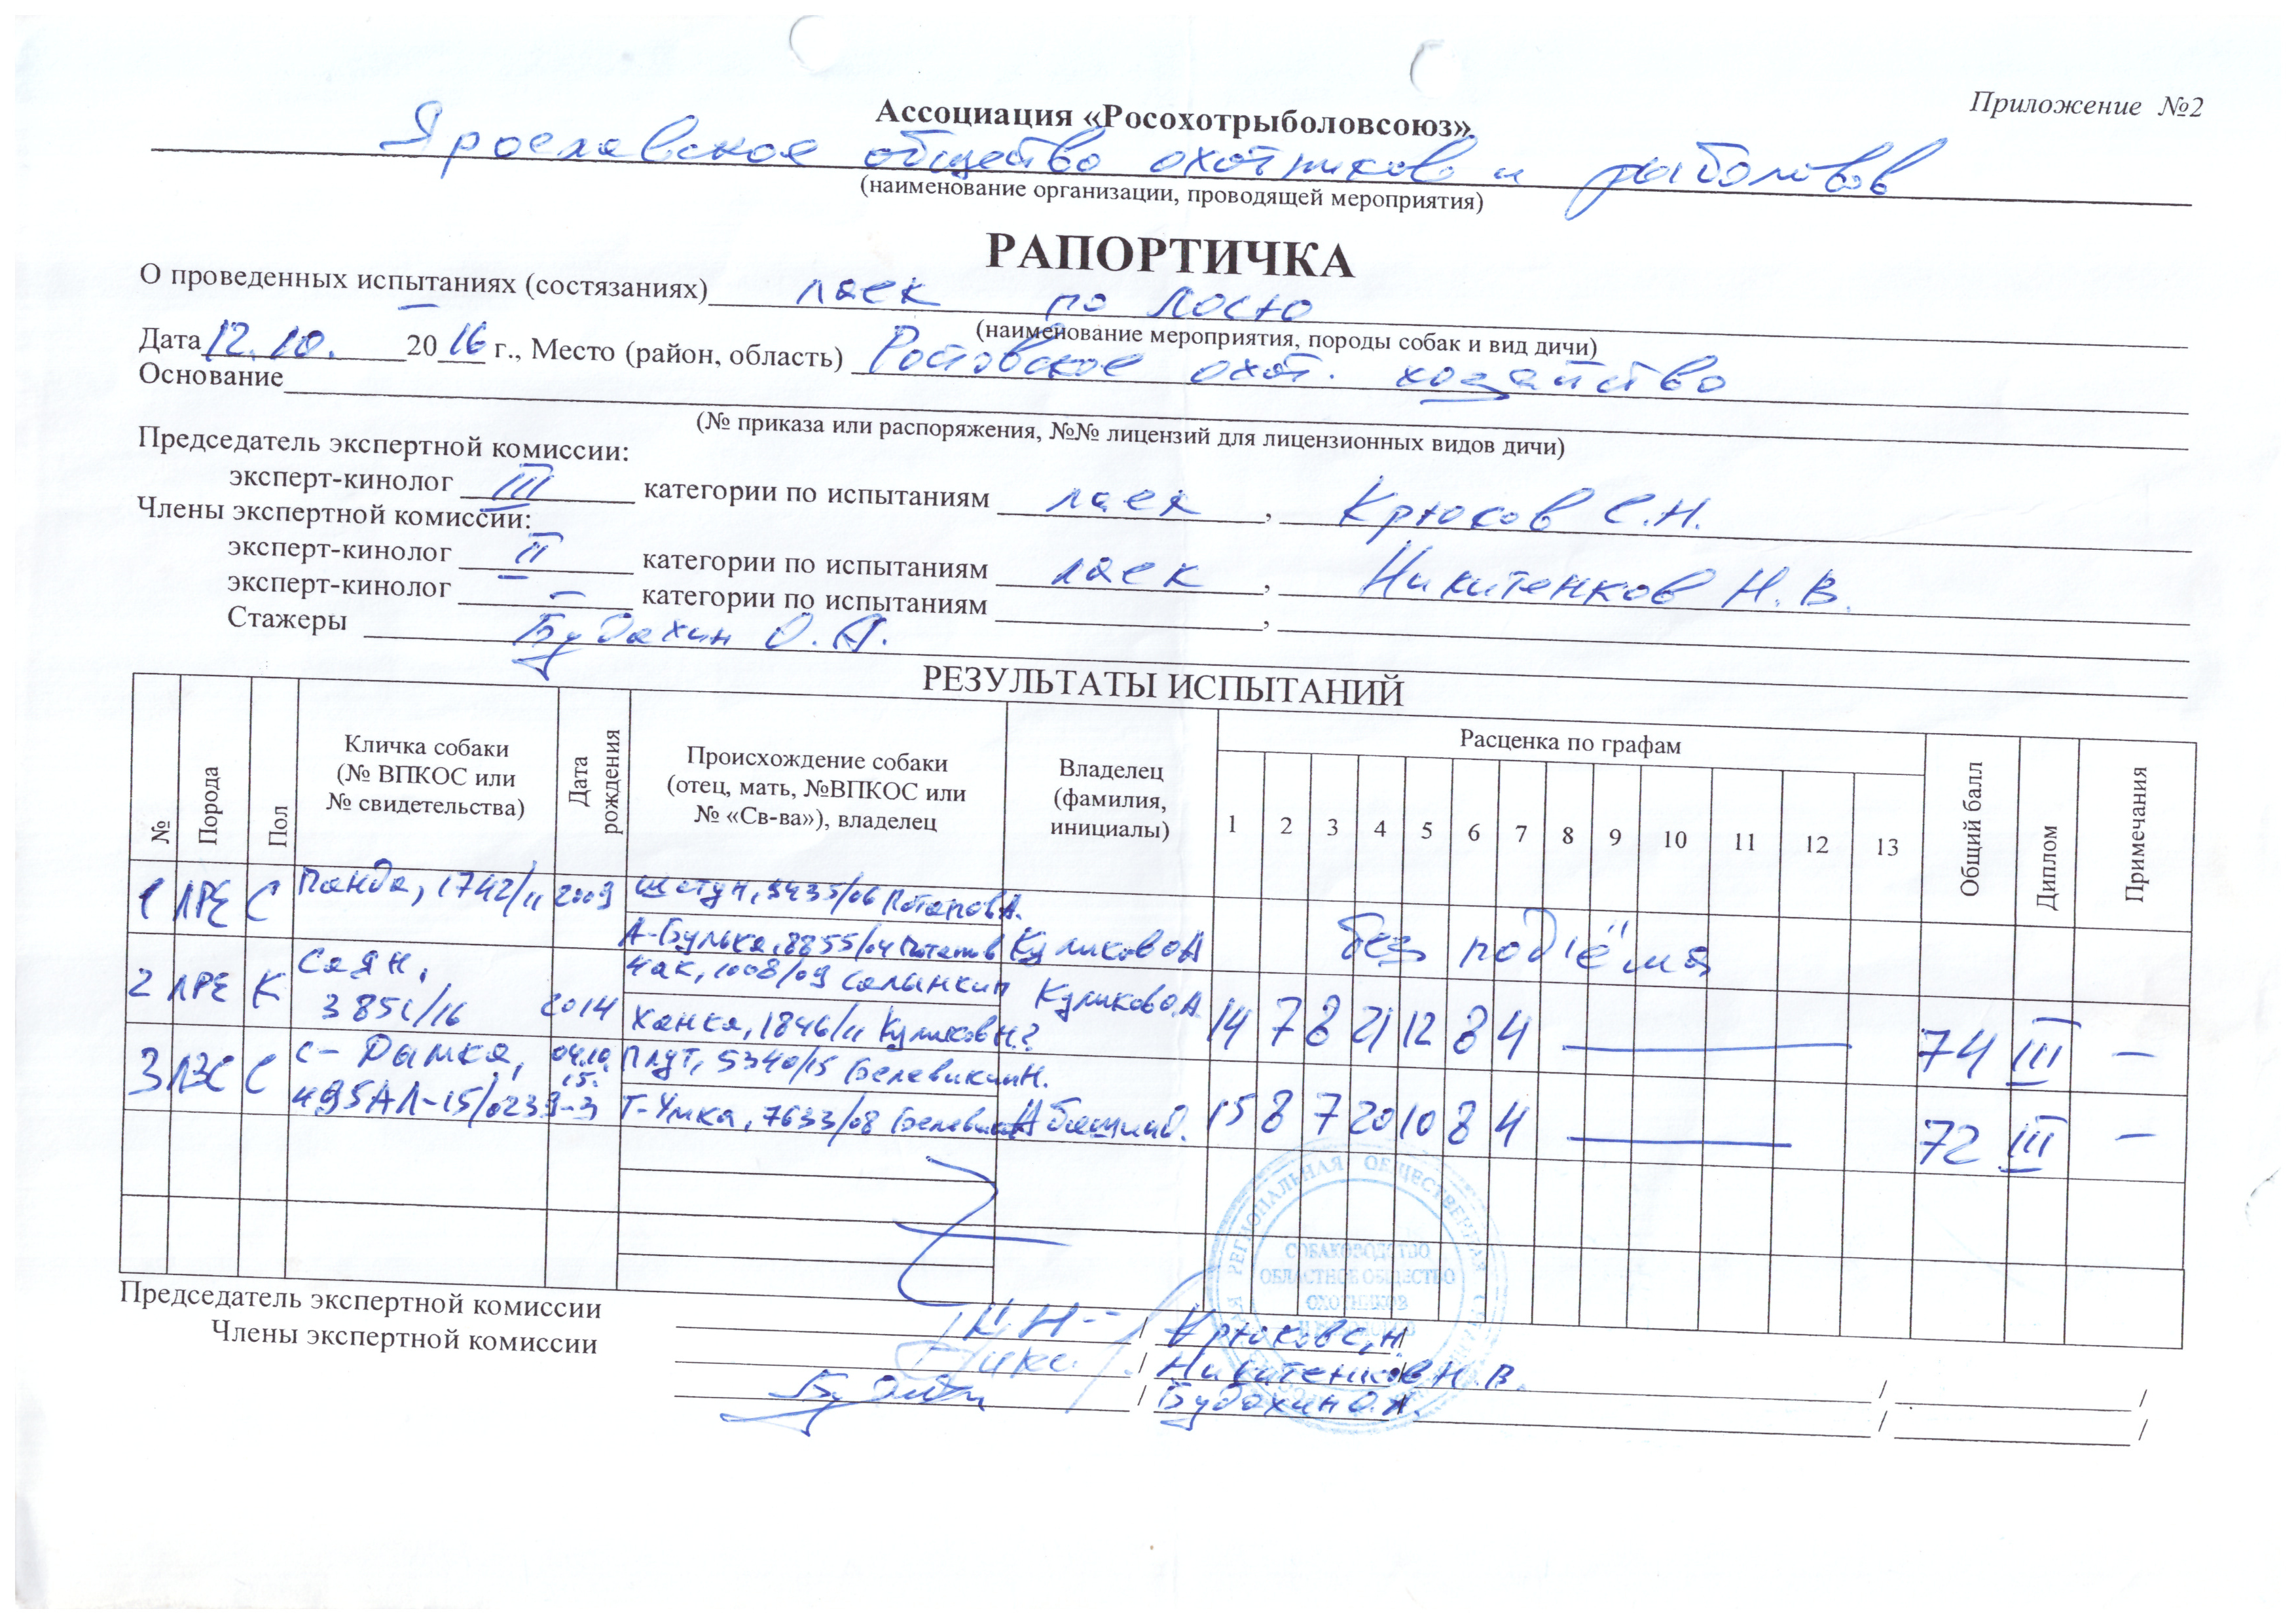 Приложение №2
Ассоциация «Росохотрыболовсоюз»
Ярославское общество охотников и рыболовов
(наименование организации, проводящей мероприятия)
РАПОРТИЧКА
О проведенных испытаниях (состязаниях) лаек по лосю
(наименование мероприятия, породы собак и вид дичи)
Дата 12.10. 2016 г., Место (район, область) Ростовское охот. хозайство
Основание
(№ приказа или распоряжения, №№ лицензий для лицензионных видов дичи)
Председатель экспертной комиссии:
эксперт-кинолог III категории по испытаниям лаек, Крюков С.Н.
Члены экспертной комиссии:
эксперт-кинолог II категории по испытаниям лаек, Никитенков Н.В.
эксперт-кинолог – категории по испытаниям ,
Стажеры Будахин О.А.
РЕЗУЛЬТАТЫ ИСПЫТАНИЙ
№ Порода Пол Кличка собаки (№ ВПКОС или № свидетельства) Дата рождения Происхождение собаки (отец, мать, №ВПКОС или № «Св-ва»), владелец Владелец (фамилия, инициалы) Расценка по графам Общий балл Диплом Примечания
1 2 3 4 5 6 7 8 9 10 11 12 13
1 ЛРЕ С Панда, 1742/11 2009 Шатун, 3435/06 Потапов А.
А-Булька, 8855/04 Куликов О.А без подъёма
2 ЛРЕ К Саян, 3851/16 2014 Чак, 1008/09 Салынкин
Ханка, 1846/11 Куликов Н? Куликов О.А. 14 7 8 21 12 8 4 — 74 III –
3 ЛЗС С С-Дымка, 495АЛ-15/0239-3 04.10.15. Плут, 5340/15 Белевикин Н.
Т-Умка, 7633/08 15 8 7 20 10 8 4 — 72 III –
РЕГИОНАЛЬНАЯ ОБЩЕСТВЕННАЯ
СОБАКОВОДСТВО
ОБЛАСТНОЕ ОБЩЕСТВО
ОХОТНИКОВ
Председатель экспертной комиссии / Крюков С.Н. /
Члены экспертной комиссии / Никитенков Н.В. / /
/ Будахин О.А. / /